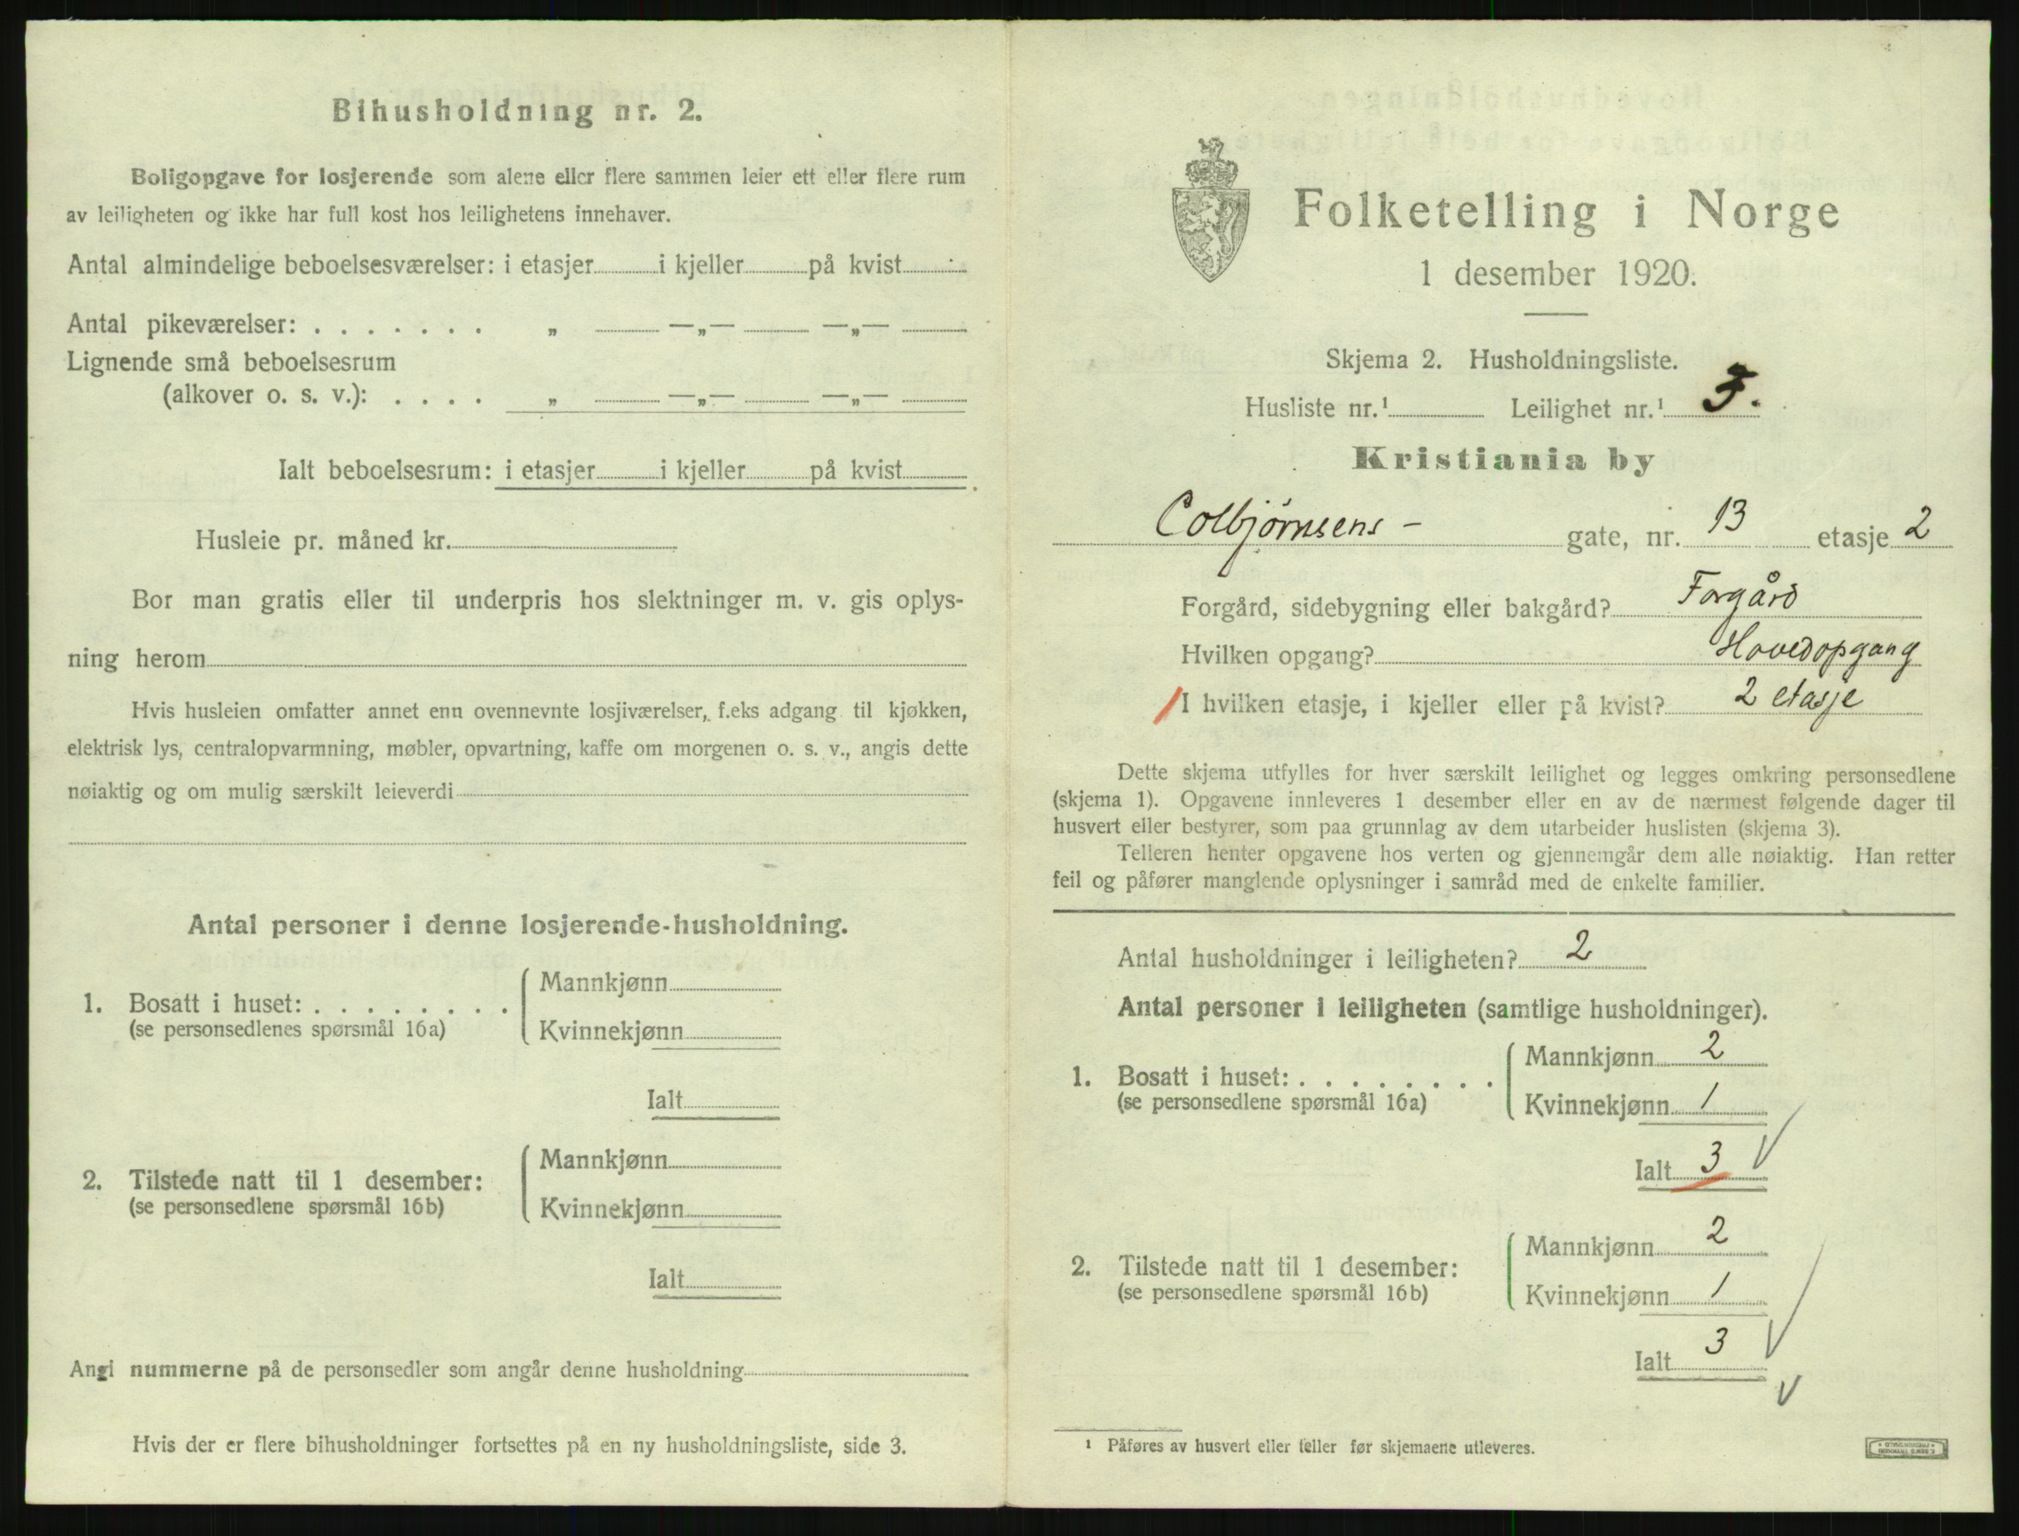 Bihusholdning nr. 2.
Boligopgave for losjerende som alene eller flere sammen leier ett eller flere rum
av leiligheten og ikke har full kost hos leilighetens innehaver.
Antal almindelige beboelsesværelser: i etasjer i kjeller på kvist
Antal pikeværelser: . . . . . . . „ —„— —„—
Lignende små beboelsesrum
(alkover o. s. v.): . . . . „ —„— —„—
Ialt beboelsesrum: i etasjer i kjeller på kvist
Husleie pr. måned kr.
Bor man gratis eller til underpris hos slektninger m. v. gis oplys-
ning herom
Hvis husleien omfatter annet enn ovennevnte losjiværelser, f.eks adgang til kjøkken,
elektrisk lys, centralopvarmning, møbler, opvartning, kaffe om morgenen o. s. v., angis dette
nøiaktig og om mulig særskilt leieverdi
Antal personer i denne losjerende-husholdning.
1. Bosatt i huset: . . . . . . . . Mannkjønn
(se personsedlenes spørsmål 16a) Kvinnekjønn
Ialt
2. Tilstede natt til 1 desember: Mannkjønn
(se personsedlene spørsmål 16b) Kvinnekjønn
Ialt
Angi nummerne på de personsedler som angår denne husholdning
Hvis der er flere bihusholdninger fortsettes på en ny husholdningsliste, side 3.
Folketelling i Norge
1 desember 1920.
Skjema 2. Husholdningsliste.
Husliste nr.¹ Leilighet nr.¹
Kristiania by
Colbjørnsens- gate, nr. 13 etasje 2
Forgård, sidebygning eller bakgård? Forgård
Hvilken opgang? Hovedopgang
I hvilken etasje, i kjeller eller på kvist? 2 etasje
Dette skjema utfylles for hver særskilt leilighet og legges omkring personsedlene
(skjema 1). Opgavene innleveres 1 desember eller en av de nærmest følgende dager til
husvert eller bestyrer, som paa grunnlag av dem utarbeider huslisten (skjema 3).
Telleren henter opgavene hos verten og gjennemgår dem alle nøiaktig. Han retter
feil og påfører manglende oplysninger i samråd med de enkelte familier.
Antal husholdninger i leiligheten? 2
Antal personer i leiligheten (samtlige husholdninger).
1. Bosatt i huset: . . . . . . . . Mannkjønn 2
(se personsedlene spørsmål 16a) Kvinnekjønn 1
Ialt 3
2. Tilstede natt til 1 desember: Mannkjønn 2
(se personsedlene spørsmål 16b) Kvinnekjønn 1
Ialt 3
¹ Påføres av husvert eller teller før skjemaene utleveres.